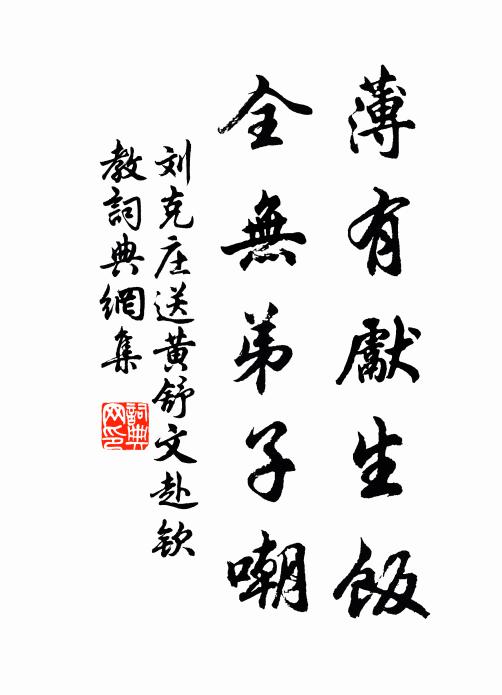 薄有獻生飯
全無弟子嘲
刘克庄送黄舒文赴欽
教詞典網集
詞典网印